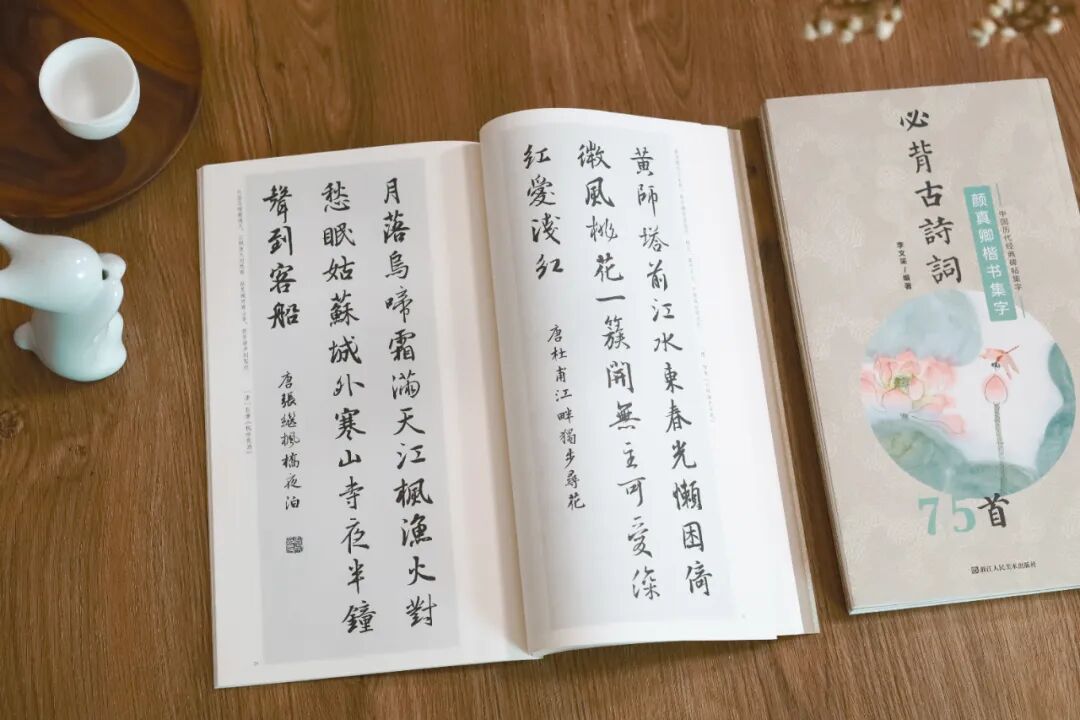 月落烏啼霜滿天江楓漁火對
愁眠姑蘇城外寒山寺夜半鐘
聲到客船
唐張繼楓橋夜泊
黃師塔前江水東春光懶困倚
微風桃花一簇開無主可愛深
紅愛淺紅
唐杜甫江畔獨步尋花
必背古詩詞
中国历代经典碑帖集字
颜真卿楷书集字
李文采·编著
75首
浙江人民美术出版社